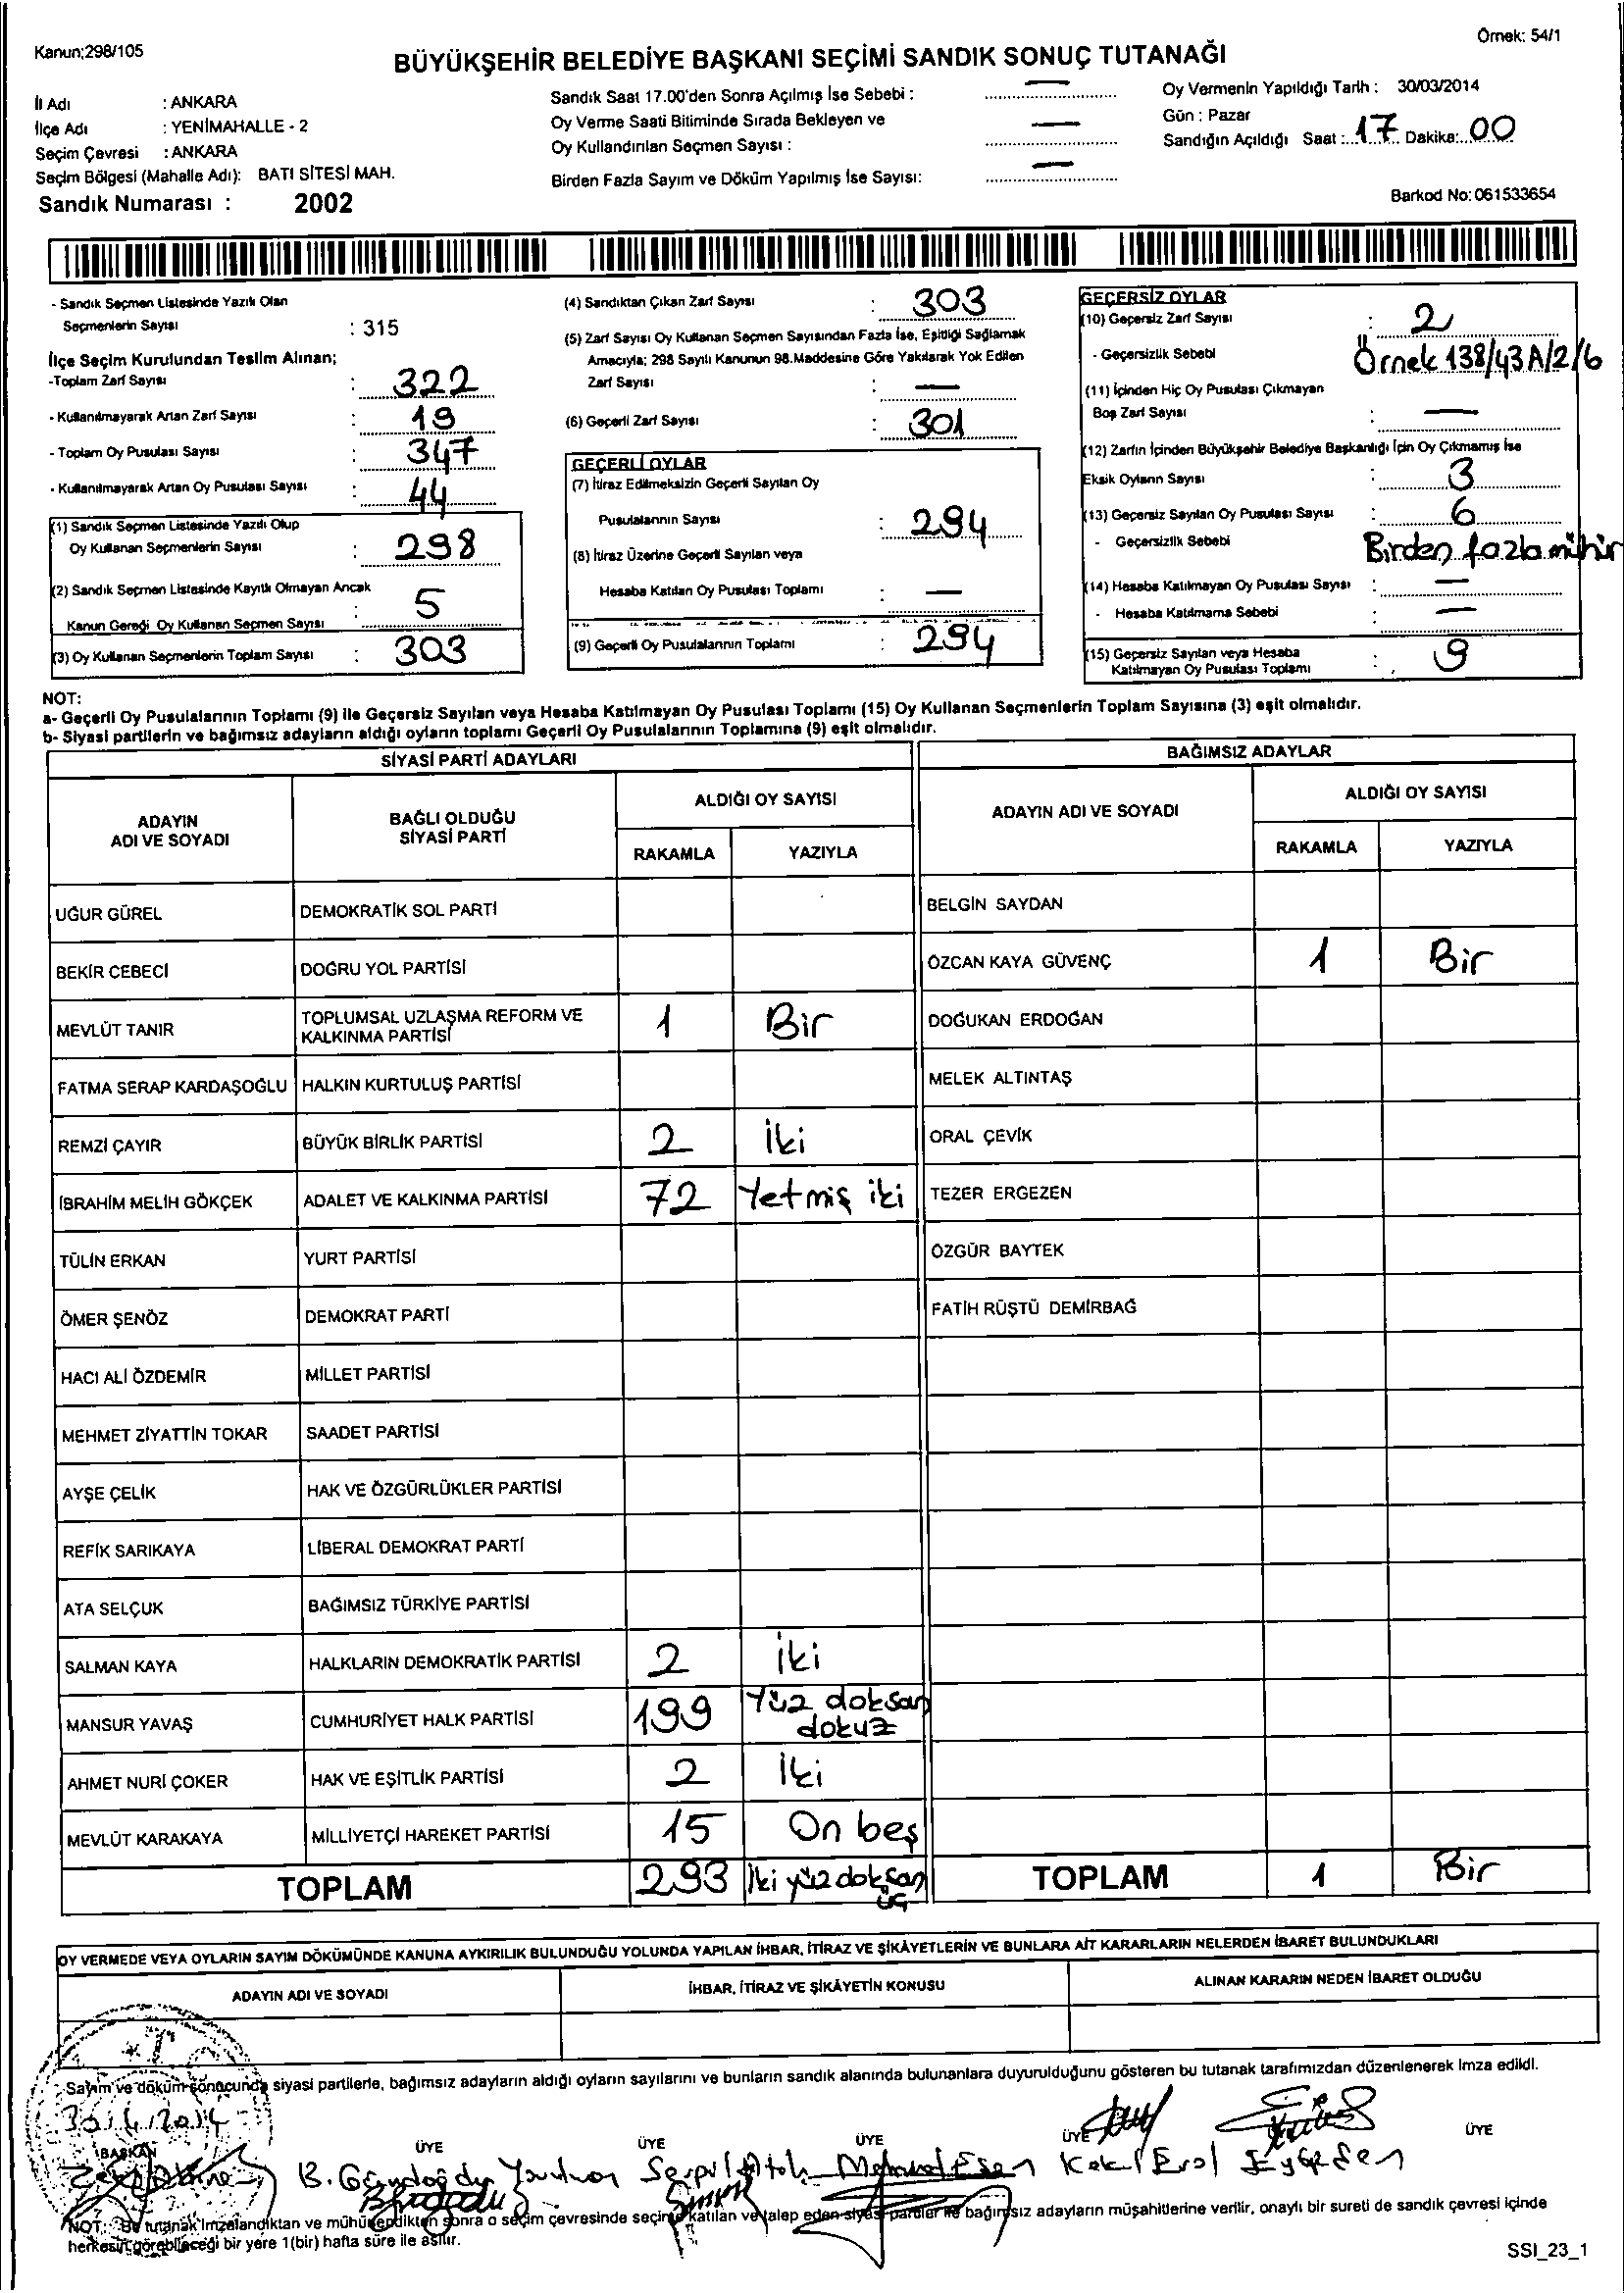 Kanun;298/105
Örnek: 54/1
BÜYÜKŞEHİR BELEDİYE BAŞKANI SEÇİMİ SANDIK SONUÇ TUTANAĞI
İl Adı : ANKARA
İlçe Adı : YENİMAHALLE - 2
Seçim Çevresi : ANKARA
Seçim Bölgesi (Mahalle Adı): BATI SİTESİ MAH.
Sandık Numarası : 2002
Sandık Saat 17.00'den Sonra Açılmış İse Sebebi : —
Oy Verme Saati Bitiminde Sırada Bekleyen ve
Oy Kullandırılan Seçmen Sayısı : —
Birden Fazla Sayım ve Döküm Yapılmış İse Sayısı: —
Oy Vermenin Yapıldığı Tarih : 30/03/2014
Gün : Pazar
Sandığın Açıldığı Saat : 17 Dakika: 00
Barkod No: 061533654
- Sandık Seçmen Listesinde Yazılı Olan
Seçmenlerin Sayısı : 315
İlçe Seçim Kurulundan Teslim Alınan;
-Toplam Zarf Sayısı : 322
- Kullanılmayarak Artan Zarf Sayısı : 19
- Toplam Oy Pusulası Sayısı : 347
- Kullanılmayarak Artan Oy Pusulası Sayısı : 44
(1) Sandık Seçmen Listesinde Yazılı Olup
Oy Kullanan Seçmenlerin Sayısı : 298
(2) Sandık Seçmen Listesinde Kayıtlı Olmayan Ancak
Kanun Gereği Oy Kullanan Seçmen Sayısı : 5
(3) Oy Kullanan Seçmenlerin Toplam Sayısı : 303
(4) Sandıktan Çıkan Zarf Sayısı : 303
(5) Zarf Sayısı Oy Kullanan Seçmen Sayısından Fazla İse, Eşitliği Sağlamak
Amacıyla; 298 Sayılı Kanunun 98.Maddesine Göre Yakılarak Yok Edilen
Zarf Sayısı : —
(6) Geçerli Zarf Sayısı : 301
GEÇERLİ OYLAR
(7) İtiraz Edilmeksizin Geçerli Sayılan Oy
Pusulalarının Sayısı : 294
(8) İtiraz Üzerine Geçerli Sayılan veya
Hesaba Katılan Oy Pusulası Toplamı : —
(9) Geçerli Oy Pusulalarının Toplamı : 294
GEÇERSİZ OYLAR
(10) Geçersiz Zarf Sayısı : 2
- Geçersizlik Sebebi Örnek 138/43A/2/6
(11) İçinden Hiç Oy Pusulası Çıkmayan
Boş Zarf Sayısı : —
(12) Zarfın İçinden Büyükşehir Belediye Başkanlığı İçin Oy Çıkmamış İse
Eksik Oyların Sayısı : 3
(13) Geçersiz Sayılan Oy Pusulası Sayısı : 6
- Geçersizlik Sebebi Birden fazla mühür
(14) Hesaba Katılmayan Oy Pusulası Sayısı : —
- Hesaba Katılmama Sebebi : —
(15) Geçersiz Sayılan veya Hesaba
Katılmayan Oy Pusulası Toplamı : 9
NOT:
a- Geçerli Oy Pusulalarının Toplamı (9) ile Geçersiz Sayılan veya Hesaba Katılmayan Oy Pusulası Toplamı (15) Oy Kullanan Seçmenlerin Toplam Sayısına (3) eşit olmalıdır.
b- Siyasi partilerin ve bağımsız adayların aldığı oyların toplamı Geçerli Oy Pusulalarının Toplamına (9) eşit olmalıdır.
SİYASİ PARTİ ADAYLARI
ADAYIN ADI VE SOYADI BAĞLI OLDUĞU SİYASİ PARTİ ALDIĞI OY SAYISI
RAKAMLA YAZIYLA
UĞUR GÜREL DEMOKRATİK SOL PARTİ
BEKİR CEBECİ DOĞRU YOL PARTİSİ
MEVLÜT TANIR TOPLUMSAL UZLAŞMA REFORM VE KALKINMA PARTİSİ 1 Bir
FATMA SERAP KARDAŞOĞLU HALKIN KURTULUŞ PARTİSİ
REMZİ ÇAYIR BÜYÜK BİRLİK PARTİSİ 2 İki
İBRAHİM MELİH GÖKÇEK ADALET VE KALKINMA PARTİSİ 72 Yetmiş iki
TÜLİN ERKAN YURT PARTİSİ
ÖMER ŞENÖZ DEMOKRAT PARTİ
HACI ALİ ÖZDEMİR MİLLET PARTİSİ
MEHMET ZİYATTİN TOKAR SAADET PARTİSİ
AYŞE ÇELİK HAK VE ÖZGÜRLÜKLER PARTİSİ
REFİK SARIKAYA LİBERAL DEMOKRAT PARTİ
ATA SELÇUK BAĞIMSIZ TÜRKİYE PARTİSİ
SALMAN KAYA HALKLARIN DEMOKRATİK PARTİSİ 2 İki
MANSUR YAVAŞ CUMHURİYET HALK PARTİSİ 199 Yüz doksan dokuz
AHMET NURİ ÇOKER HAK VE EŞİTLİK PARTİSİ 2 İki
MEVLÜT KARAKAYA MİLLİYETÇİ HAREKET PARTİSİ 15 On beş
TOPLAM 293 İki yüz doksan üç
BAĞIMSIZ ADAYLAR
ADAYIN ADI VE SOYADI ALDIĞI OY SAYISI
RAKAMLA YAZIYLA
BELGİN SAYDAN
ÖZCAN KAYA GÜVENÇ 1 Bir
DOĞUKAN ERDOĞAN
MELEK ALTINTAŞ
ORAL ÇEVİK
TEZER ERGEZEN
ÖZGÜR BAYTEK
FATİH RÜŞTÜ DEMİRBAĞ
TOPLAM 1 Bir
OY VERMEDE VEYA OYLARIN SAYIM DÖKÜMÜNDE KANUNA AYKIRILIK BULUNDUĞU YOLUNDA YAPILAN İHBAR, İTİRAZ VE ŞİKÂYETLERİN VE BUNLARA AİT KARARLARIN NELERDEN İBARET BULUNDUKLARI
ADAYIN ADI VE SOYADI İHBAR, İTİRAZ VE ŞİKÂYETİN KONUSU ALINAN KARARIN NEDEN İBARET OLDUĞU
Sayım ve döküm sonucunda siyasi partilerle, bağımsız adayların aldığı oyların sayılarını ve bunların sandık alanında bulunanlara duyurulduğunu gösteren bu tutanak tarafımızdan düzenlenerek imza edildi.
BAŞKAN ÜYE ÜYE ÜYE ÜYE ÜYE
B. Gündoğdu Serpil Mehmet Esen Erol
NOT: Bu tutanak imzalandıktan ve mühürlendikten sonra o seçim çevresinde seçime katılan ve talep eden siyasi partiler ile bağımsız adayların müşahitlerine verilir, onaylı bir sureti de sandık çevresi içinde
herkesin görebileceği bir yere 1(bir) hafta süre ile asılır.
SSI_23_1